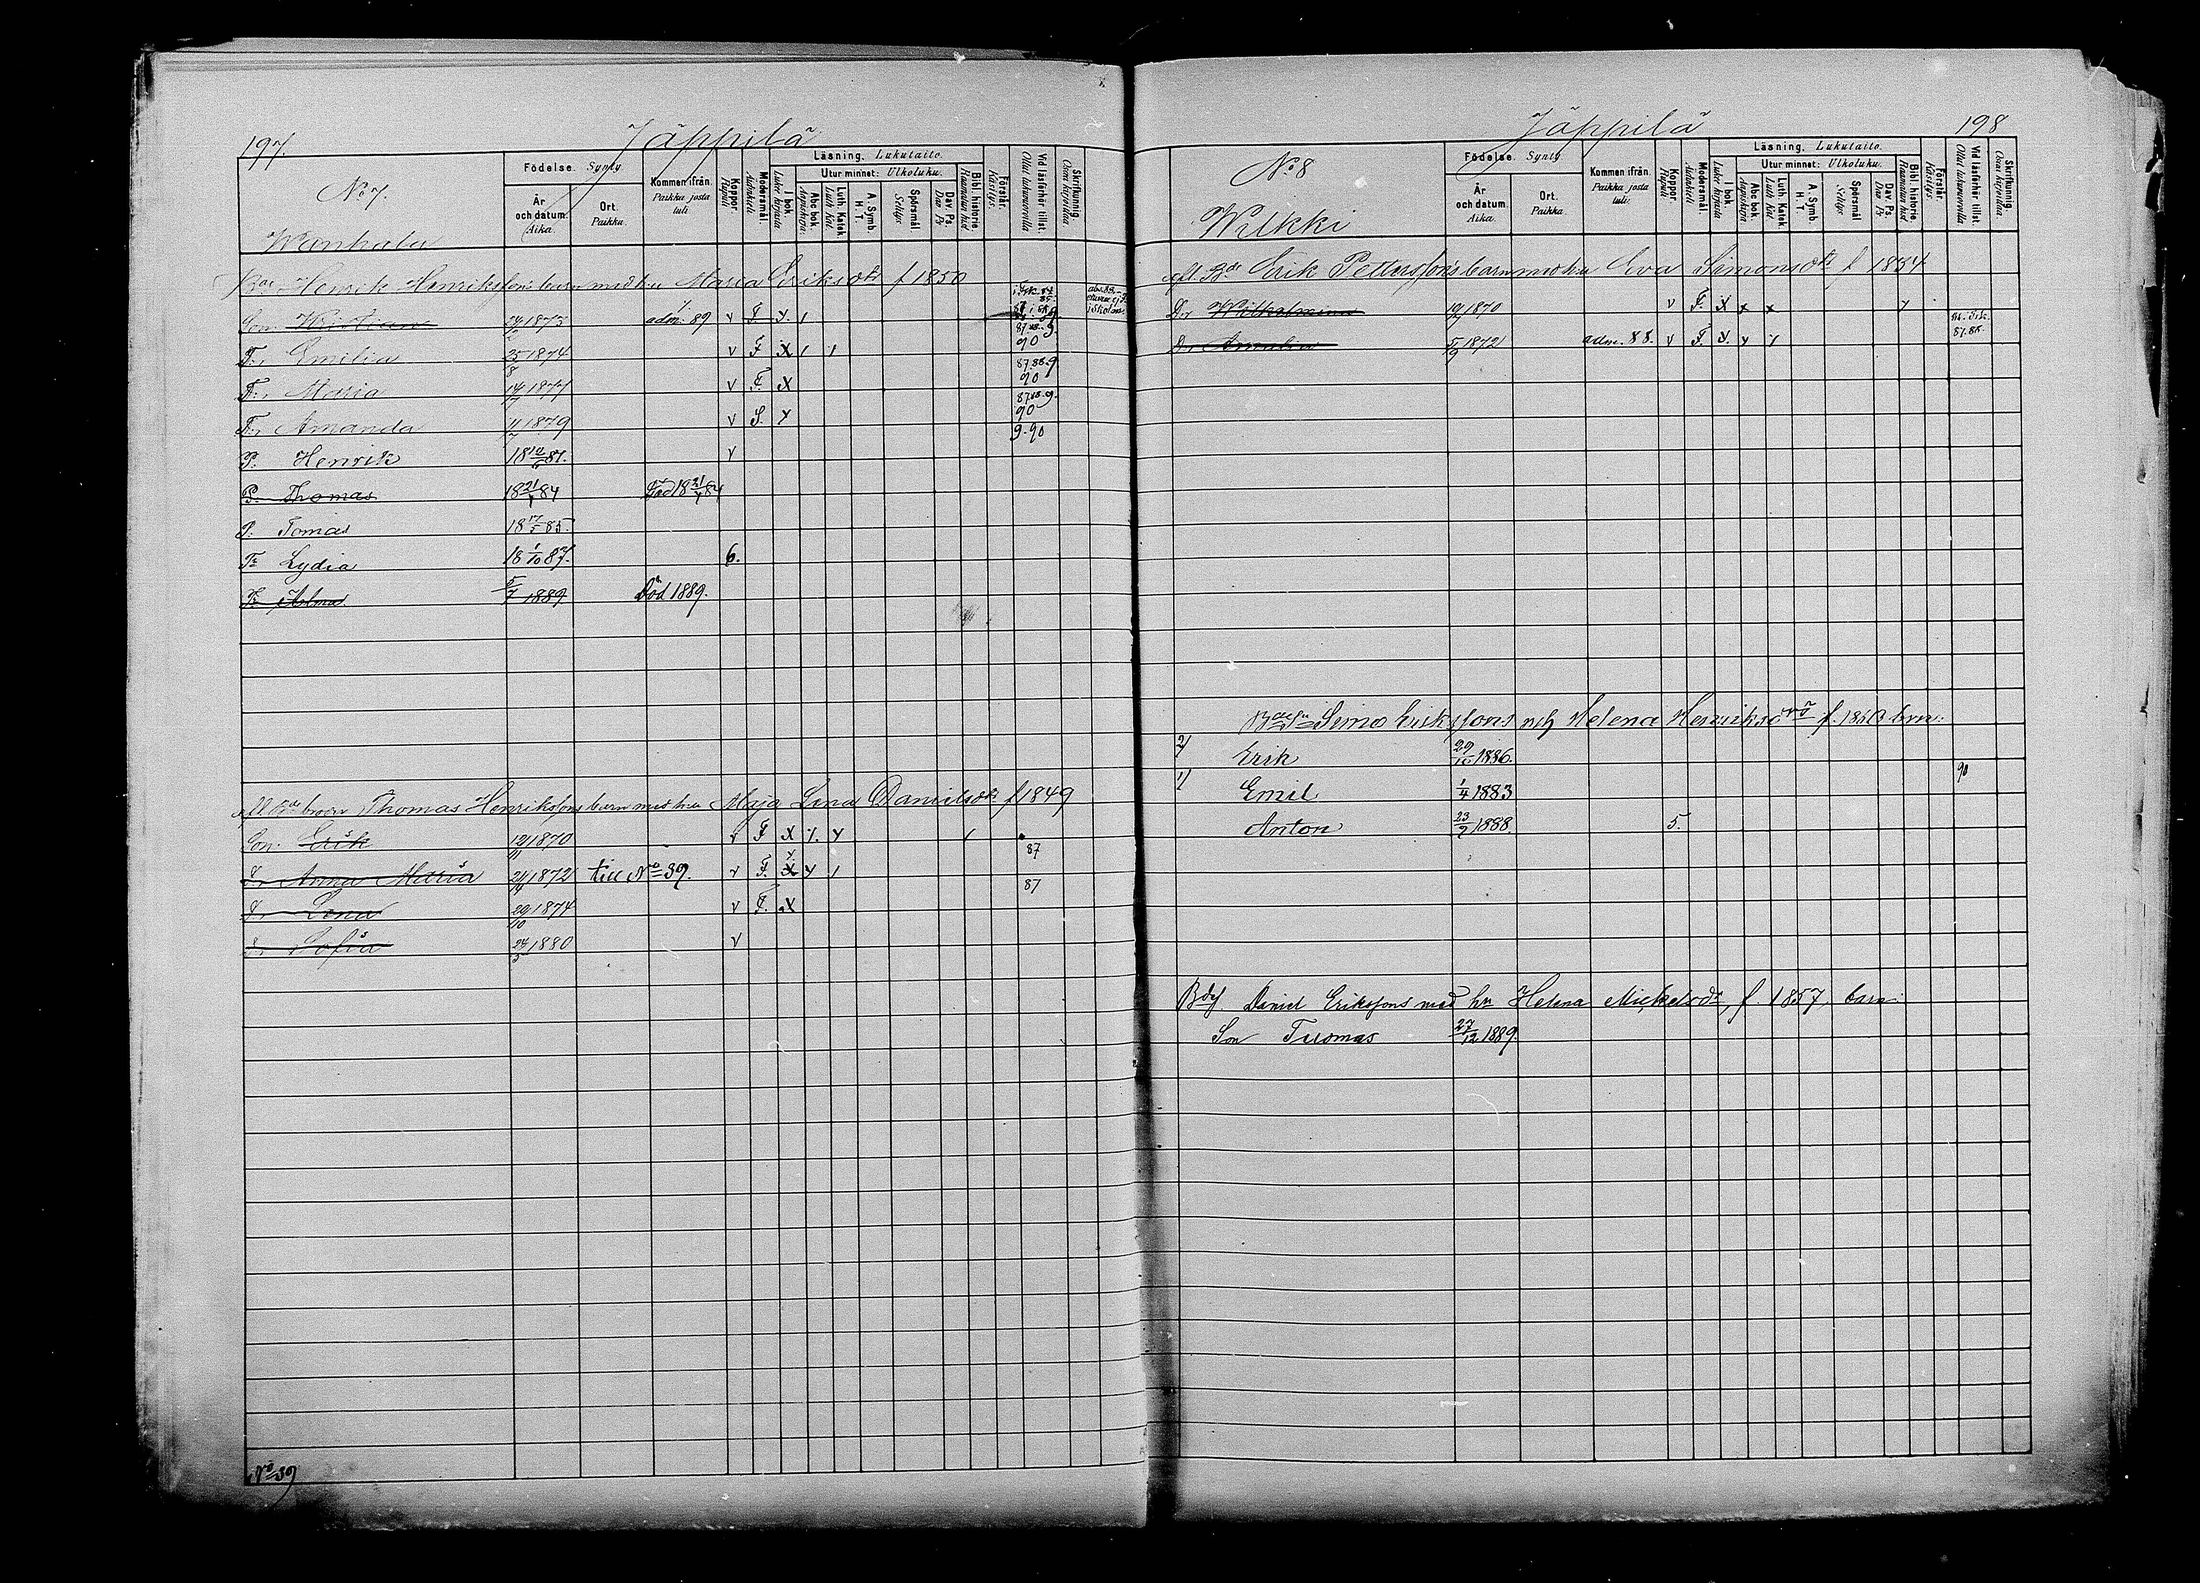 197.
Jäppilä
No 7.
Wanhala
Födelse. Synty
År och datum. Aika.
Ort. Paikka.
Kommen ifrån. Paikka josta tuli
Koppor. Rupuli
Modersmål. Äidinkieli
Läsning. Lukutaito.
I bok. Luku kirjasta
Utur minnet: Ulkoluku.
Abc bok. Aapiskirja.
Luth. Katek. Luth. Kat.
A. Symb. H. T.
Spörsmål. Selitys.
Dav. Ps. Dav. Ps.
Bibl. historie. Raamatun hist
Förstår. Käsitys.
Vid läsförhör tillst. Ollut lukuseroilla
Skrifkunnig. Osaa kirjoittaa
Bde Henrik Henrikssons barn med hu Maria Eriksdr f 1850
Son 1875 adm. 89 v F. x. 1
Dr Emilia 25/8 1874 v F x 1 1 90
Dr Maria 1877 v F. x 87.88.9 90
Dr Amanda 1879 v S. x 87.88.9. 90
P. Henrik 1881. v 9.90
P. Thomas 18 21/4 84 Död 18 21/4 84
P. Tomas 18 17/5 85.
Dr Lydia 18 1/10 87. 6.
Dr Alma 5/7 1889 Död 1889.
afl. Bde broen Thomas Henrikssons barn med hu Maja Lena Danielsdr f 1849
Son. Erik 12/11 1870 v F x 1. x 1
Dr Anna Maria 1872 till No 39. v F. x x 1 87
Dr Lena 29/10 1874 v F. x 87
Dr Sofia 1880 v
No 39
Jäppilä
198
No 8
Wilkki
Födelse. Synty
År och datum. Aika.
Ort. Paikka.
Kommen ifrån. Paikka josta tuli:
Koppor. Rupuli
Modersmål. Äidinkieli
Läsning. Lukutaito.
I bok. Luku kirjasta
Utur minnet: Ulkoluku.
Abc bok. Aapiskirja
Luth. Katek. Luth. Kat.
A. Symb. H. T.
Spörsmål Selitys
Dav. Ps. Dav. Ps
Bibl. historie. Raamatun hist
Förstår. Käsitys.
Vid läsförhör tillst. Ollut lukuseroilla
Skrifkunnig. Osaa kirjoittaa
afl. Bde Erik Petterssons barn med hu Eva Simonsdr f 1834
Dr Wilhelmina 1870 v F. x x x
Dr Amalia 5/9 1872 adm. 88. v F. x. x 87.88.
Simo Erikssons och Helena Henriksdr f. 1860 barn:
2) Erik 29/10 1886.
1) Emil 1/4 1883 90
Anton 23/7 1888 5.
Daniel Erikssons med hu Helena Mickelsdr f. 1857, barn:
Son Tuomas 27/12 1889.